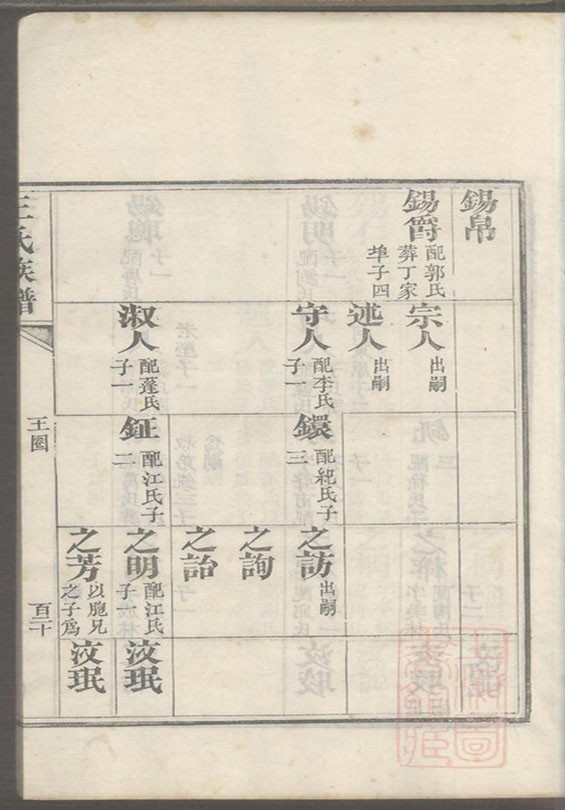 錫帛
錫爵 配郭氏
葬丁家
埠子四
宗人 出嗣
述人 出嗣
守人 配李氏
子一
淑人 配蓬氏
子一
鐶 配紀氏子
三
鉦 配江氏子
二
之訪 出嗣
之詢
之詒
之明 配江氏
子
之芳 以胞兄
之子為
汶珉
汶珉
王氏族譜
王圈
百二十